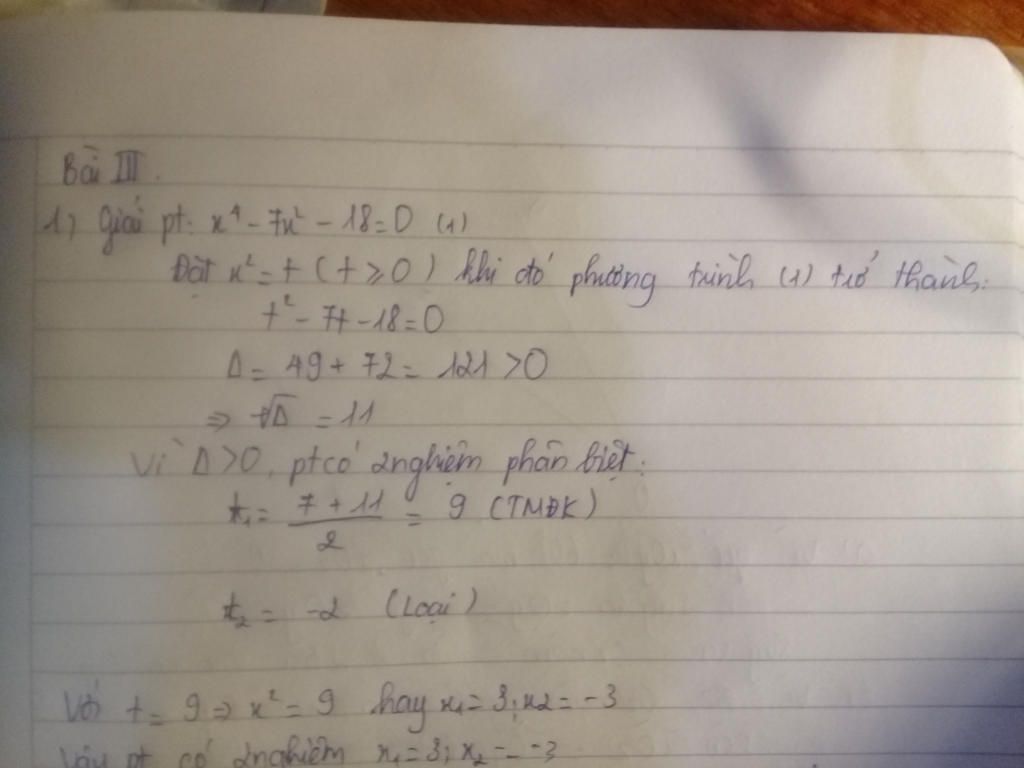 Bài III.
1) Giải pt: x⁴ - 7x² - 18 = 0 (1)
Đặt x² = t (t ⩾ 0) khi đó phương trình (1) trở thành:
t² - 7t - 18 = 0
Δ = 49 + 72 = 121 > 0
⇒ √Δ = 11
Vì Δ > 0, pt có 2 nghiệm phân biệt:
t₁ = (7 + 11)/2 = 9 (TMĐK)
t₂ = -2 (Loại)
Với t = 9 ⇒ x² = 9 hay x₁ = 3; x2 = -3
Vậy pt có 2 nghiệm x₁ = 3; x₂ = -3